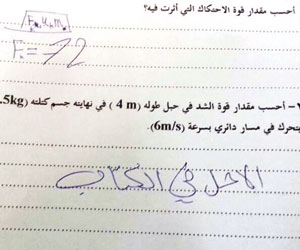 أحسب مقدار قوة الاحتكاك التي أثرت فيه؟
F = -12
- أحسب مقدار قوة الشد في حبل طوله (4 m) في نهايته جسم كتلته (.5kg
يتحرك في مسار دائري بسرعة (6m/s).
الاحل في الكتاب